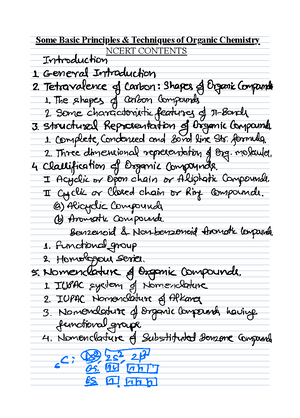 Some Basic Principles & Techniques of Organic Chemistry
NCERT CONTENTS
Introduction
1. General Introduction
2. Tetravalence of Carbon: Shapes of Organic Compounds
1. The shapes of Carbon Compounds
2. Some characteristic features of π-Bonds
3. Structural Representation of Organic Compounds
1. Complete, Condensed and Bond line Str. formula
2. Three dimensional representation of Org. molecules
4. Classification of Organic Compounds
I Acyclic or Open chain or Aliphatic Compounds
II Cyclic or Closed chain or Ring Compounds.
(a) Alicyclic Compounds
(b) Aromatic Compounds
Benzenoid & Non-benzenoid Aromatic Compounds
1. Functional group
2. Homologous Series.
5. Nomenclature of Organic Compounds.
1. IUPAC system of Nomenclature
2. IUPAC Nomenclature of Alkanes
3. Nomenclature of Organic Compounds having
functional groups
4. Nomenclature of Substituted Benzene Compounds
₆C: 1s² 2s² 2p²
GS
ES